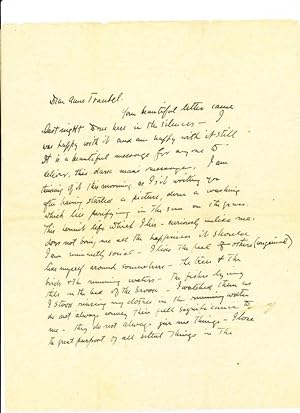 Dear Anne Traubel.
Your beautiful letter came
last night down here in the silences — I
was happy with it and am happy with it still
It is a beautiful message for anyone to
deliver, this dear man messenger. I am
thinking of it this morning as I sit writing you
after having started a picture, done a washing
which lies purifying in the sun on the grass.
This hermit life which I live — curiously unlike me
does not bring me all the happiness it should
I am unusually social — I love the feel of others
has myself around somewhere — The trees & the
birds & the running waters — The fishes lying
still in the bed of the brook — I watched them as
I stood rinsing my clothes in the running water
do not always convey their full significance to
me — they do not always give me things — I love
the great purport of all silent things in the